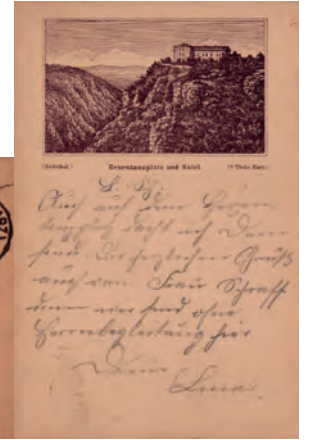 (Bodethal.) Hexentanzplatz und Hôtel. (b/Thale. Harz.)
L. Sch.
Auch auf dem Hexen-
tanzplatz dacht ich Dein
send. Dir herzlichen Gruß
auch von Frau Schraff
denn wir sind ohne
Herrenbegleitung hier
Deine
Lina.
1871